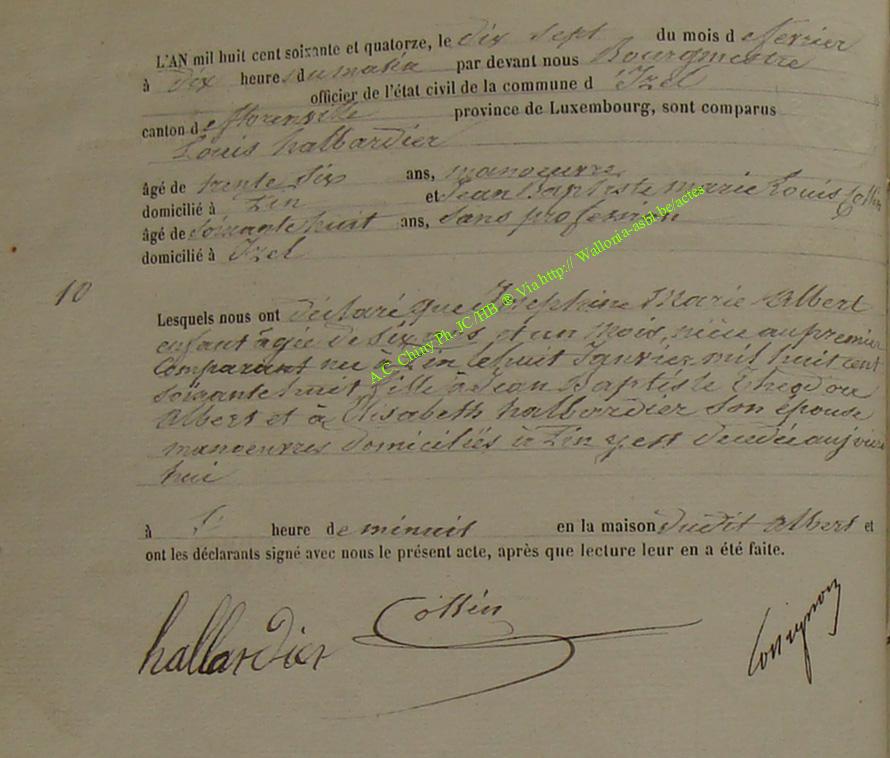 L'AN mil huit cent soixante et quatorze, le dix sept du mois de fevrier
à dix heures du matin par devant nous Bourgmestre
officier de l'état civil de la commune d'Izel
canton de florenville province de Luxembourg, sont comparus
Louis hallardier
âgé de trente six ans, manoeuvre
domicilié à Pin et Jean Baptiste Marie Louis Collin
âgé de soixante huit ans, sans profession
domicilié à Izel
10
Lesquels nous ont déclaré que Josephine Marie Albert
enfant âgée de six ans et un mois, nièce au premier
Comparant née à Pin le huit Janvier mil huit cent
soixante huit fille à Jean Baptiste Theodore
Albert et à Elisabeth hallardier son épouse
manoeuvres domiciliés à Pin y est decedée aujour
hui
à heure de minuit en la maison dudit Albert et
ont les déclarants signé avec nous le présent acte, après que lecture leur en a été faite.
hallardier Collin
A.C. Chiny Ph. JC /HB ® Via http:// Wallonia-asbl.be/actes